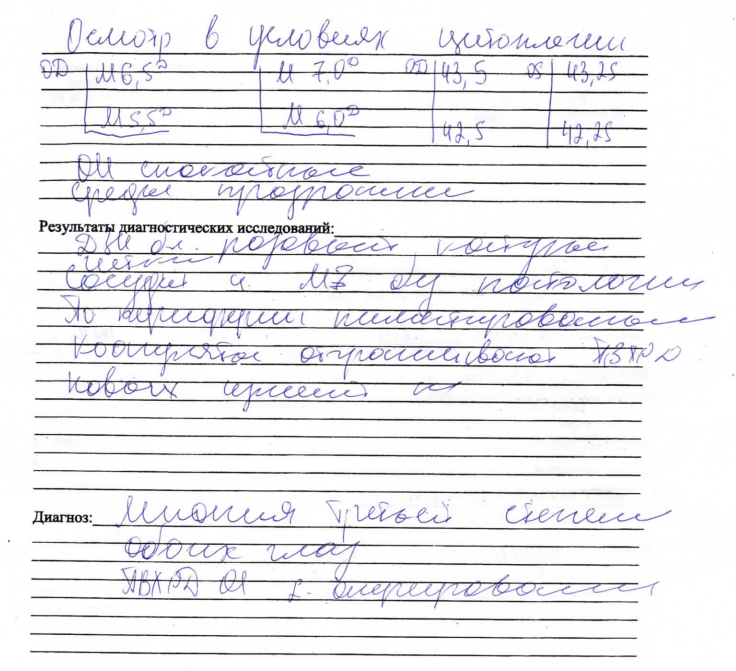 Осмотр в условиях циклоплегии
OD М 6,5ᴰ М 7,0ᴰ OD 43,5 OS 43,25
М 5,5ᴰ М 6,0ᴰ 42,5 42,25
ОИ спокойные
Среды прозрачны
Результаты диагностических исследований:
ДЗН бл. розовый, контуры
четкие
Сосуды и MZ б/у патологии
По периферии пигментированные
коагуляты отграничивают ПВХРД
новых измен нет
Диагноз: Миопия третьей степени
обоих глаз
ПВХРД OU оперированная